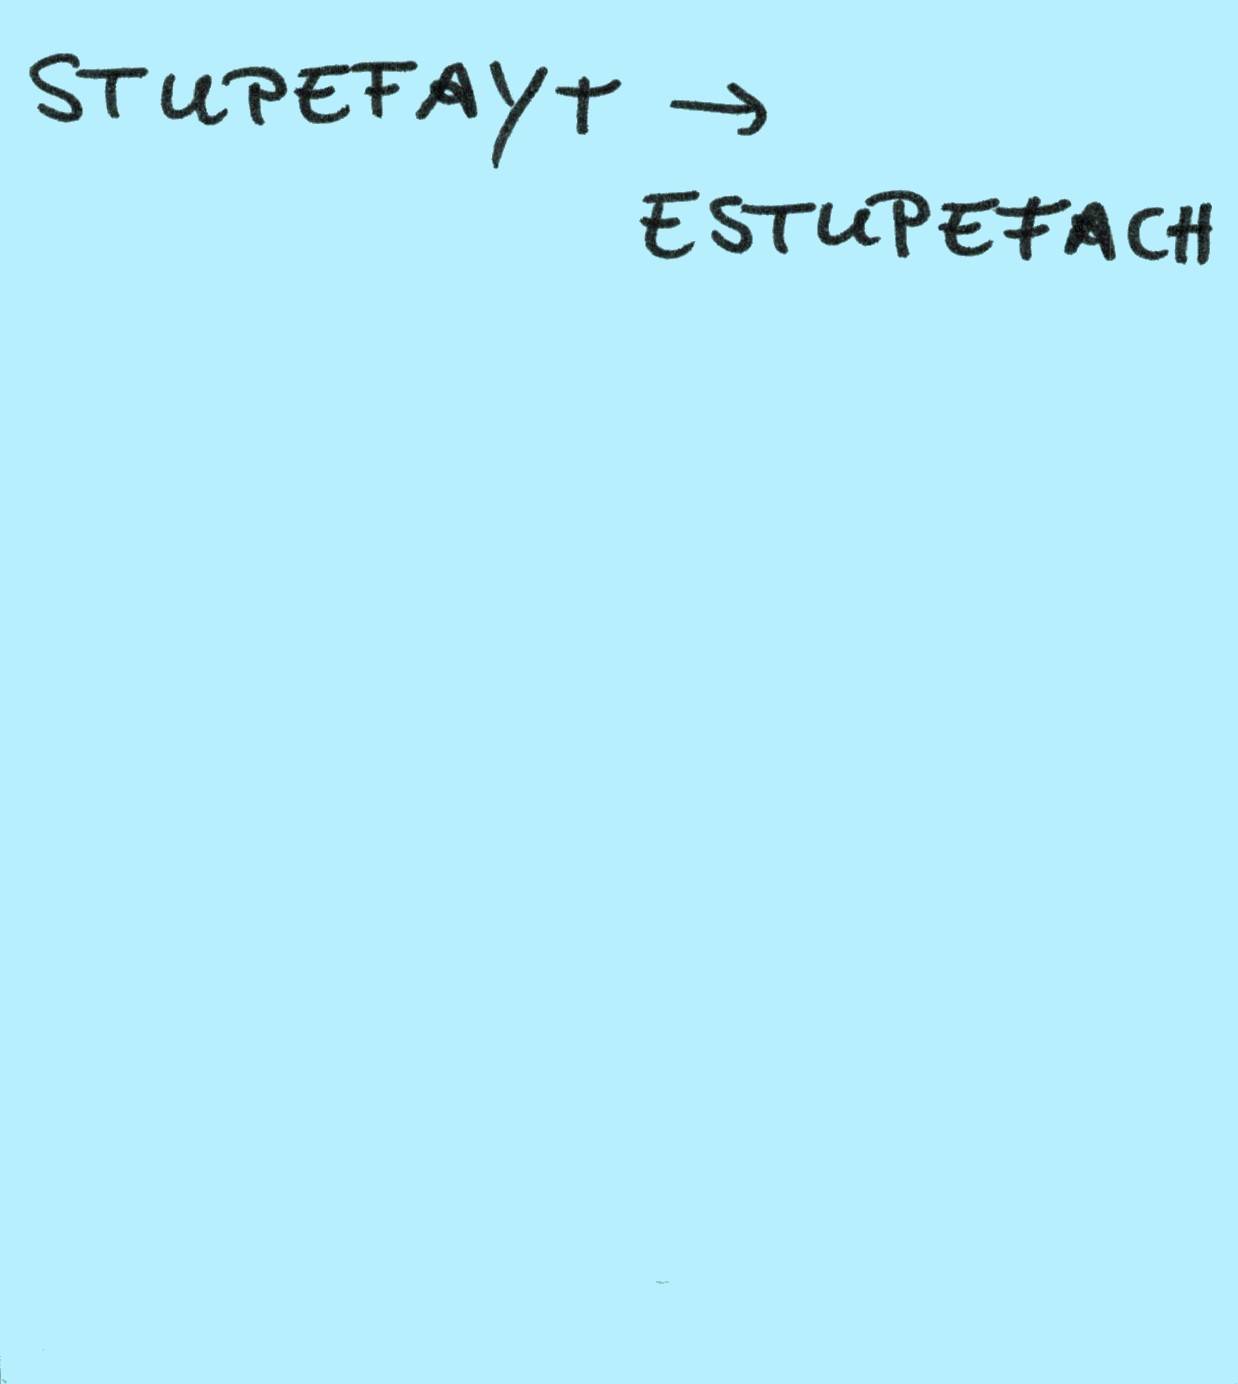 STUPEFAYT →
ESTUPEFACH